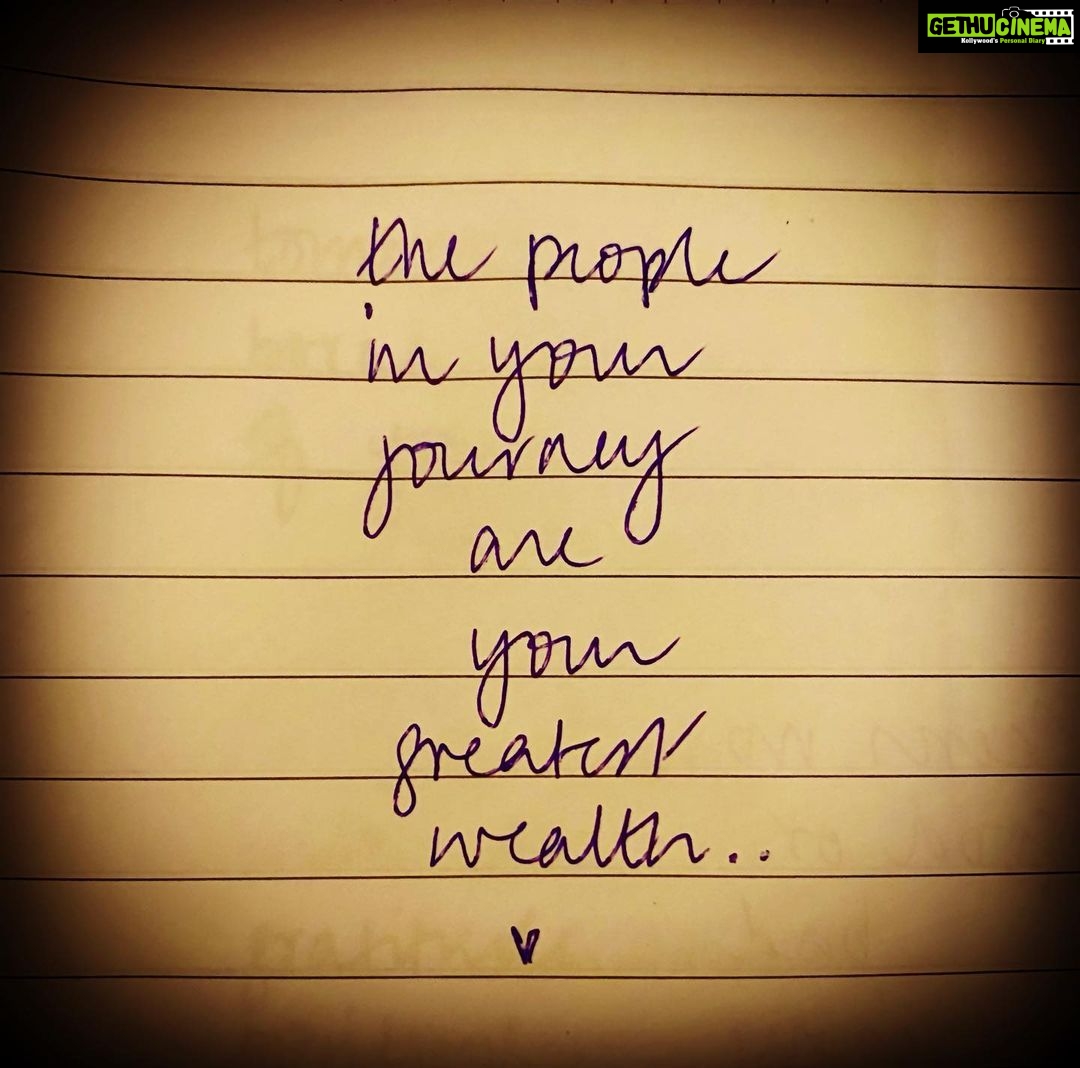 GETHUCINEMA
Kollywood's Personal Diary
the people
in your
journey
are
your
greatest
wealth..